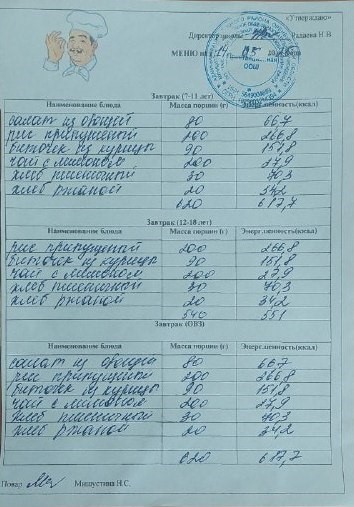 «Утверждаю»
Директор школы Радаева Н.В.
МЕНЮ на
ООШ
Завтрак (7-11 лет)
Наименование блюда Масса порции (г) Энерг.ценность(ккал)
салат из овощей 80 66.7
рис припущенный 200 266,8
биточек из курицы 90 151,8
чай с лимоном 200 27,9
хлеб пшеничный 30 70,3
хлеб ржаной 20 34,2
620 617,7
Завтрак (12-18 лет)
Наименование блюда Масса порции (г) Энерг.ценность(ккал)
рис припущеный 200 266,8
биточек из курицы 90 151,8
чай с лимоном 200 27,9
хлеб пшеничный 30 70,3
хлеб ржаной 20 34,2
540 551
Завтрак (ОВЗ)
Наименование блюда Масса порции (г) Энерг.ценность(ккал)
салат из овощей 80 66.7
рис припущеный 200 266,8
биточек из курицы 90 151,8
чай с лимоном 200 27,9
хлеб пшеничный 30 70,3
хлеб ржаной 20 34,2
620 617,7
Повар Мишустина Н.С.